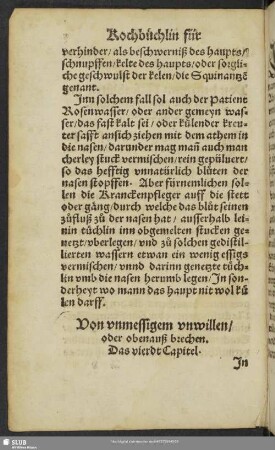 Kochbüchlin für
verhinder/als beschwerniß des haupts/
schnupffen/kelte des haupts/oder sorgli-
che geschwulst der kelen/die Squinantzē
genant.
Jnn solchem fall sol auch der Patient
Rosenwasser/ oder ander gemeyn was-
ser/das fast kalt sei / oder külender kreu-
ter safft ansich ziehen mit dem athem in
die nasen/ darunder mag mañ auch man
cherley stuck vermischen/rein gepüluert/
so das hefftig vnnatürlich blüten der
nasen stopffen. Aber fürnemlichen sol-
len die Kranckenpfleger auff die stett
oder gäng/durch welche das blüt seinen
zůfluß zů der nasen hat/ ausserhalb lei-
nin tüchlin inn obgemelten stucken ge-
netzt/vberlegen/ vnd zů solchen gedistil-
lierten wassern etwan ein wenig essigs
vermischen/ vnnd darinn genetzte tüch-
lin vmb die nasen herumb legen/ Jn son-
derheyt wo mann das haupt nit wol kü
len darff.
Von vnmessigem vnwillen/
oder obenauß brechen.
Das vierdt Capitel.
Jn
SLUB